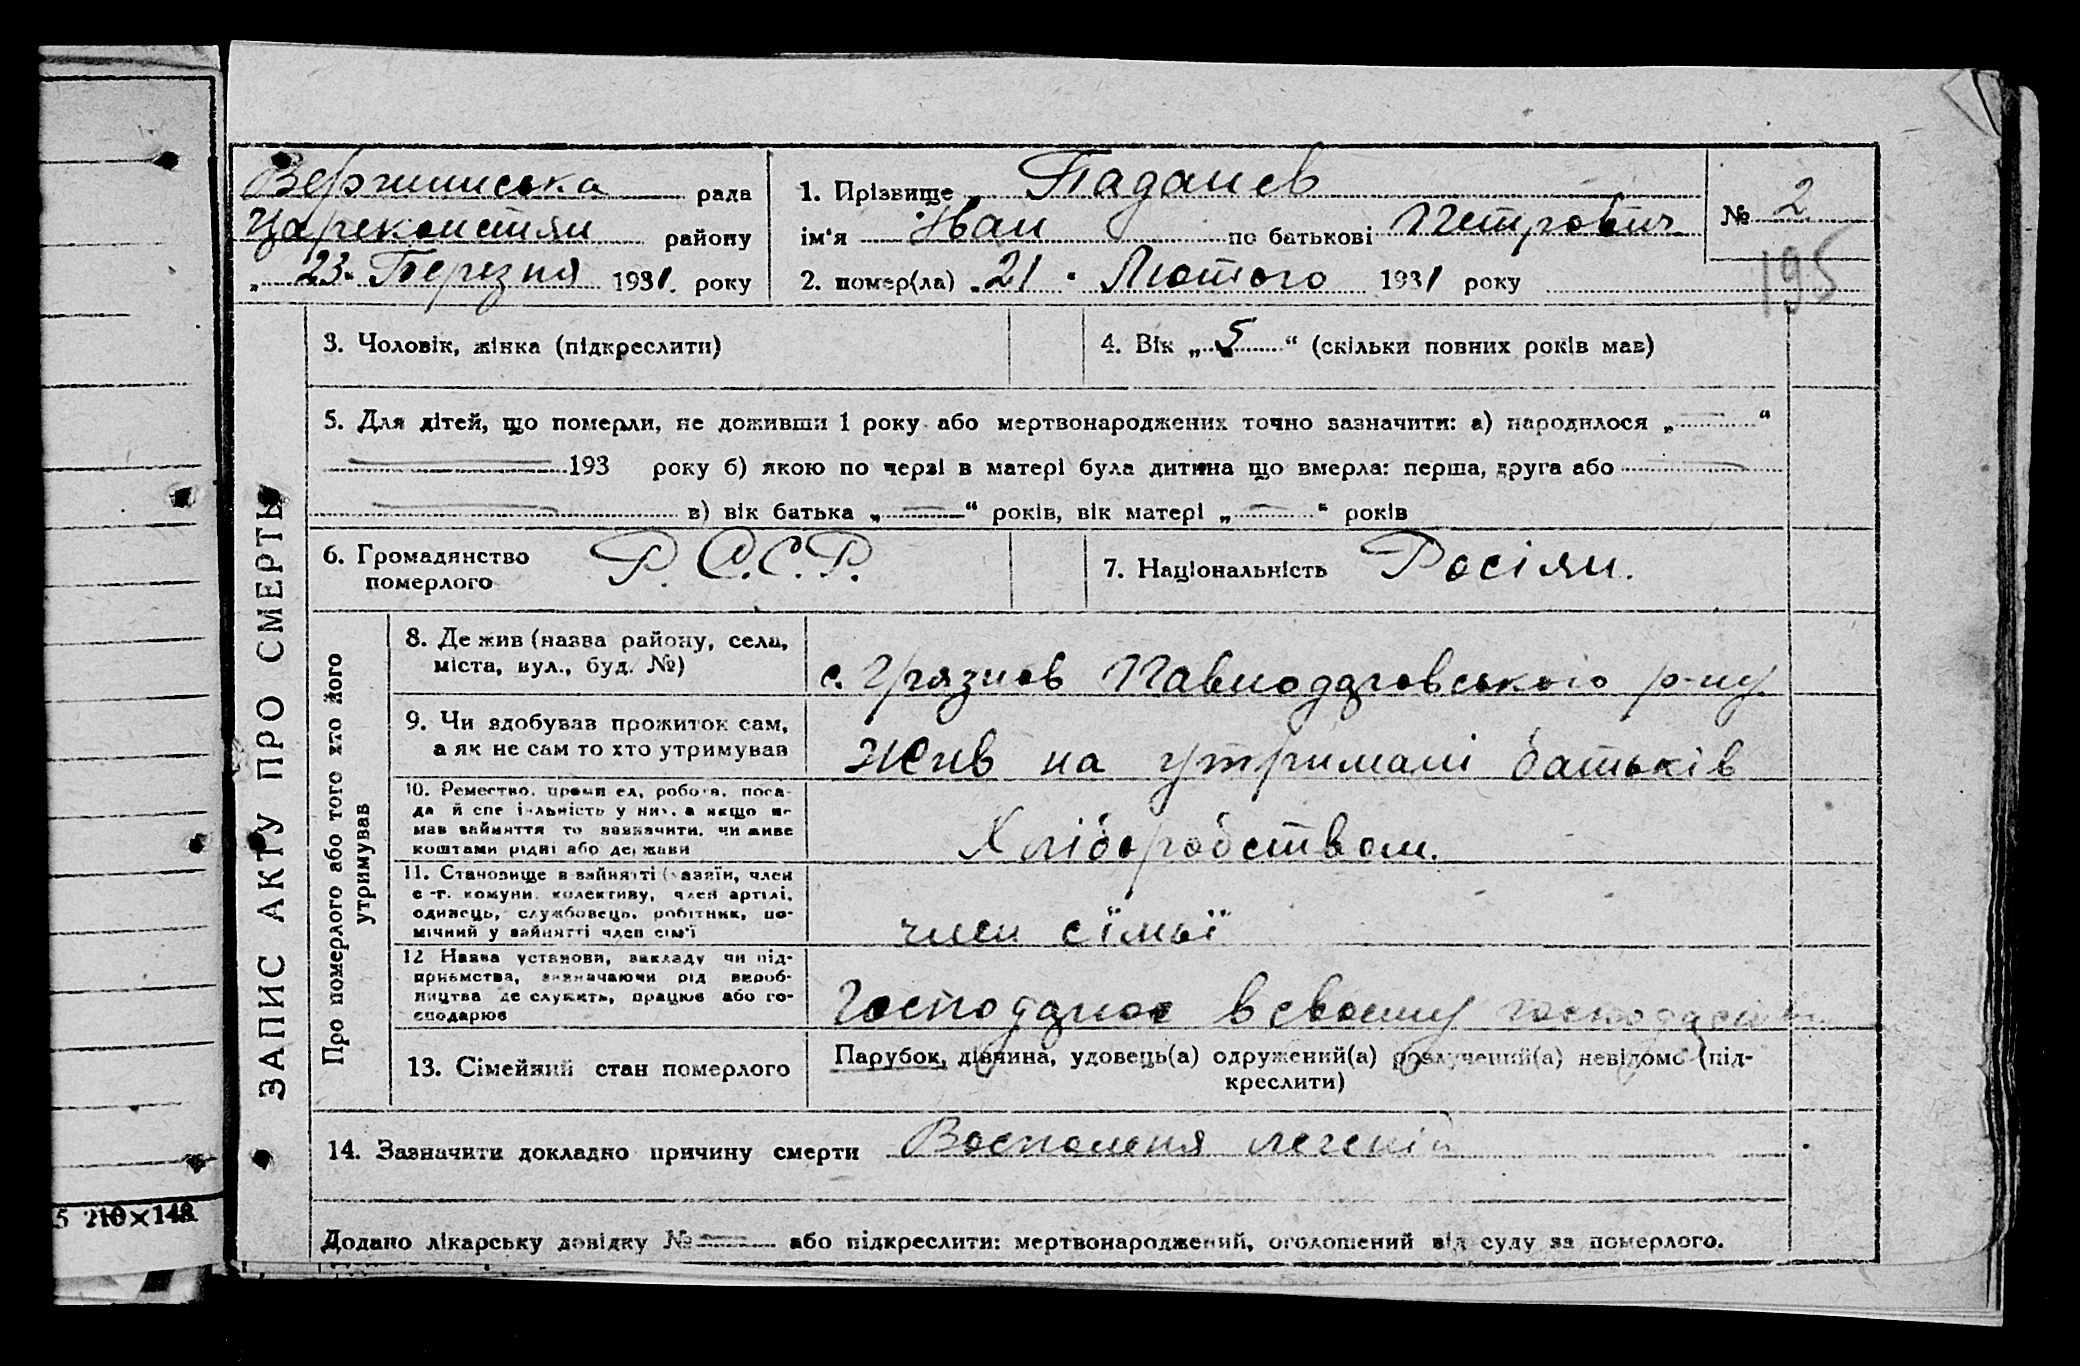 Вершинська рада
Цареконстян району
„ 23 " Березня 1931. року
1. Прізвище Паданев
ім'я Іван по батькові Петрович
2. помер(ла) „ 21 " Лютого 1931 року
№ 2
195
ЗАПИС АКТУ ПРО СМЕРТЬ
3. Чоловік, жінка (підкреслити)
4. Вік „ 5 “ (скільки повних років мав)
5. Для дітей, що померли, не доживши 1 року або мертвонароджених точно зазначити: а) народилося „ — “
— 193 року б) якою по черзі в матері була дитина що вмерла: перша, друга або —
— в) вік батька „ — “ років, вік матері „ — “ років
6. Громадянство
померлого Р.С.С.Р.
7. Національність Росіян.
Про померлого або того хто його
утримував
8. Де жив (назва району, села,
міста, вул., буд. №)
с. Грязнов Павлодарговського р-ну
9. Чи здобував прожиток сам,
а як не сам то хто утримував
Жив на утримані батьків
10. Ремество, промисел, робота, поса-
да й спеціяльність у них, а якщо не
мав зайняття то зазначити, чи живе
коштами рідні або держави
Хліборобством.
11. Становище в зайнятті (хазяїн, член
с.-г. комуни, колективу, член артілі,
одинець, службовець, робітник, по-
мічний у зайнятті член сім'ї
член сімьї
12 Назва установи, закладу чи під-
приємства, визначаючи рід вироб-
ництва де служить, працює або го-
сподарює
Господарює в своєму
13. Сімейний стан померлого
Парубок, дівчина, удовець(а) одружений(а) розлучений(а) невідомо (під-
креслити)
14. Зазначити докладно причину смерти Воспаленя легенів
Додано лікарську довідку № — або підкреслити: мертвонароджений, оголошений від суду за померлого.
5 210×148